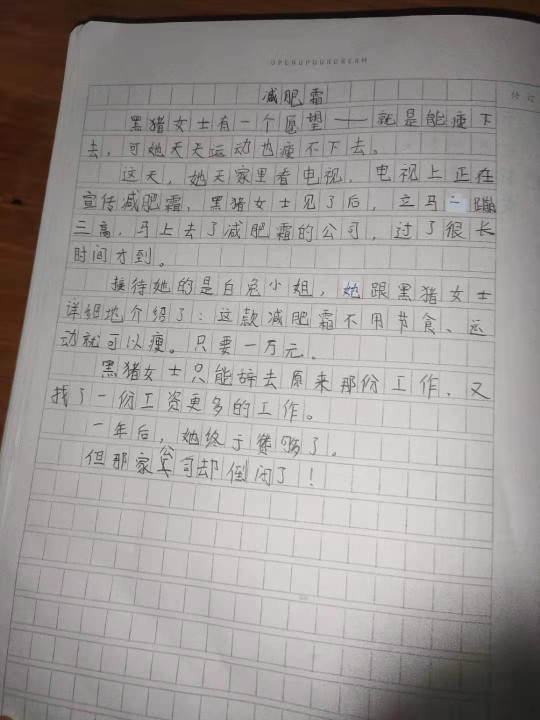 减肥霜
黑猪女士有一个愿望——就是能瘦下
去,可她天天运动也瘦不下去。
这天,她天家里看电视,电视上正在
宣传减肥霜,黑猪女士见了后,立马一蹦
三高,马上去了减肥霜的公司,过了很长
时间才到。
接待她的是白兔小姐,她跟黑猪女士
详细地介绍了:这款减肥霜不用节食、运
动就可以瘦。只要一万元。
黑猪女士只能辞去原来那份工作,又
找了一份工资更多的工作。
一年后,她终于够了。
但那家公司却倒闭了!